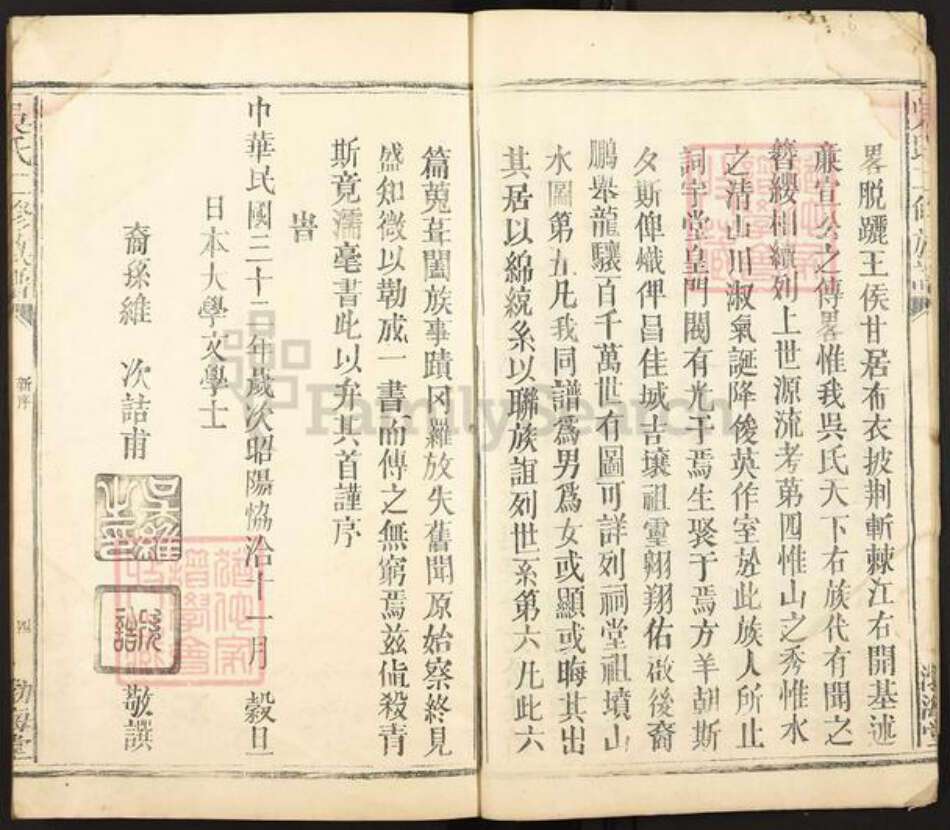 畧脫躧王侯甘居布衣披荆斬棘江右開基述
亷宣公之傳畧惟我吳氏天下右族代有聞之
簪纓相續列上世源流考苐四惟山之秀惟水
之清山川淑氣誕降俊英作室於此族人所止
祠宇堂皇門閥有光于焉生聚于焉方羊朝斯
夕斯俾熾俾昌佳城吉壤祖靈翱翔佑啟後裔
鵬舉龍驤百千萬世有圖可詳列祠堂祖墳山
水圖第五凡我同譜爲男爲女或顯或晦其出
其居以綿統系以聯族誼列世系第六凡此六
篇蒐葺闔族事蹟罔羅放失舊聞原始察終見
盛知微以勒成一書而傳之無窮焉兹値殺青
斯竟濡毫書此以弁其首謹序
旹
中華民國三十二年歲次昭陽協洽十一月 穀旦
日本大學文學士
裔孫維 次詰甫 敬譔
吳氏二修族譜
新序
四
FamilySearch